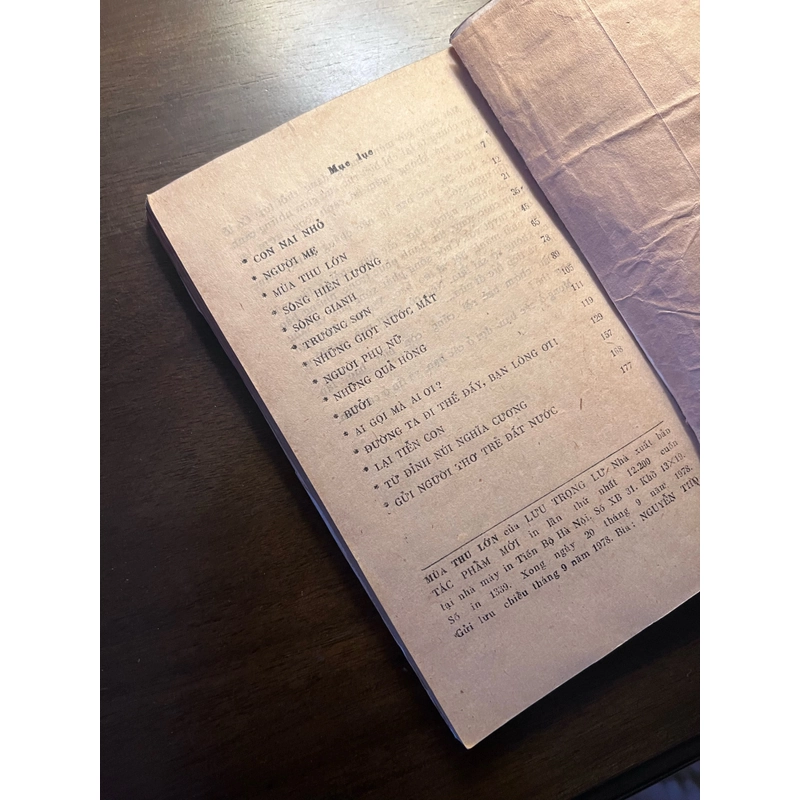 Mục lục
* CON NAI NHỎ 7
* NGƯỜI MẸ 12
* MÙA THU LỚN 21
* SÔNG HIỀN LƯƠNG 36
* SÔNG GIANH 45
* TRƯỜNG SƠN 65
* NHỮNG GIỌT NƯỚC MẮT 78
* NGƯỜI PHỤ NỮ 89
* NHỮNG QUẢ HỒNG 105
* BƯỞI 111
* AI GỌI MÀ AI ƠI? 119
* ĐƯỜNG TA ĐI THẾ ĐẤY, BẠN LÒNG ƠI! 129
* LẠI TIỄN CON 157
* TỪ ĐỈNH NÚI NGHĨA CƯƠNG 168
* GỬI NGƯỜI THƠ TRẺ ĐẤT NƯỚC 177
MÙA THU LỚN của LƯU TRỌNG LƯ. Nhà xuất bản
TÁC PHẨM MỚI in lần thứ nhất 12.200 cuốn
tại nhà máy in Tiến Bộ Hà Nội, Số XB 31. Khổ 13×19.
Số in 1339. Xong ngày 20 tháng 9 năm 1978.
Gửi lưu chiểu tháng 9 năm 1978. Bìa: NGUYỄN